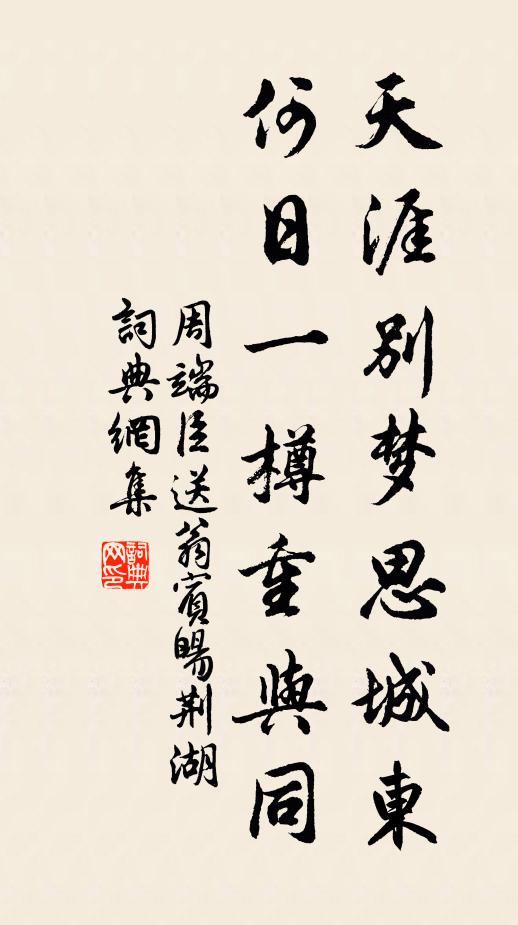 天涯別梦思城東
何日一樽重與同
周端臣送翁賓暘荆湖
詞典網集
詞典网印